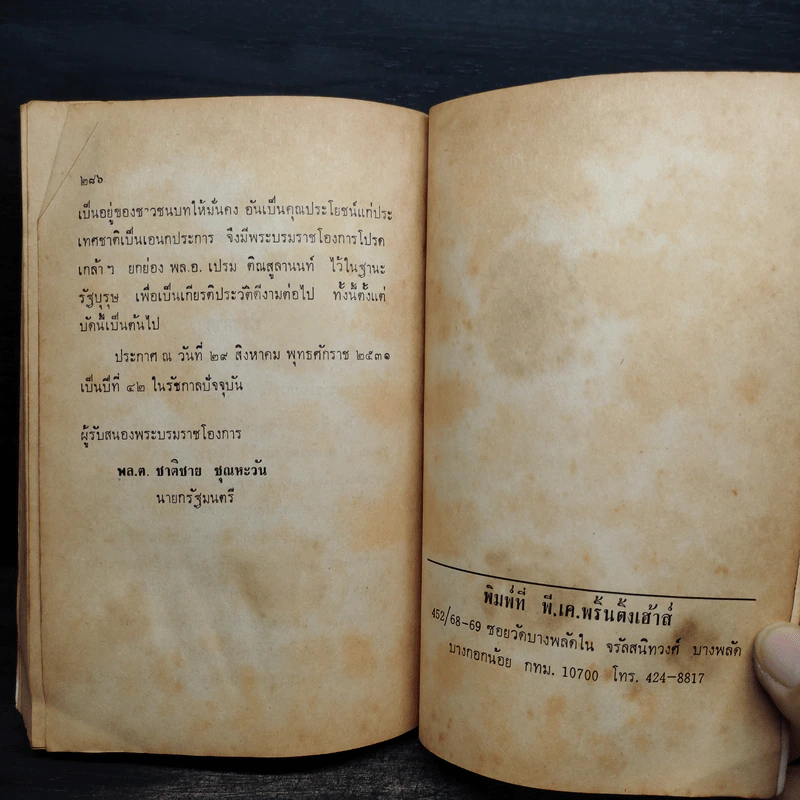 ๒๘๖
เป็นอยู่ของชาวชนบทให้มั่นคง อันเป็นคุณประโยชน์แก่ประ
เทศชาติเป็นเอนกประการ จึงมีพระบรมราชโองการโปรด
เกล้าฯ ยกย่อง พล.อ. เปรม ติณสูลานนท์ ไว้ในฐานะ
รัฐบุรุษ เพื่อเป็นเกียรติประวัติดีงามต่อไป ทั้งนี้ตั้งแต่
บัดนี้เป็นต้นไป
ประกาศ ณ วันที่ ๒๙ สิงหาคม พุทธศักราช ๒๕๓๑
เป็นปีที่ ๔๒ ในรัชกาลปัจจุบัน
ผู้รับสนองพระบรมราชโองการ
พล.ต. ชาติชาย ชุณหะวัน
นายกรัฐมนตรี
พิมพ์ที่ พี.เค.พริ้นติ้งเฮ้าส์
452/68-69 ซอยวัดบางพลัดใน จรัลสนิทวงศ์ บางพลัด
บางกอกน้อย กทม. 10700 โทร. 424-8817